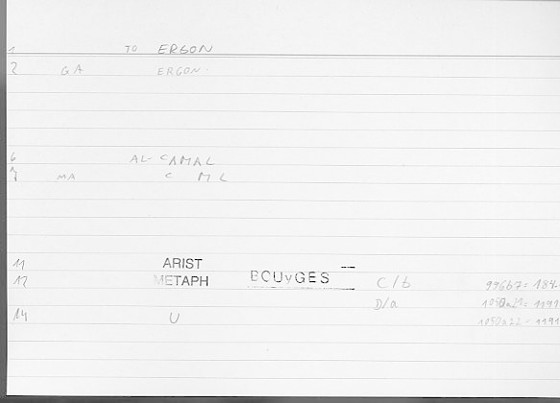 1 TO ERGON
2 GA ERGON
6 AL-CAMAL
7 MA C M L
11 ARIST
12 METAPH BOUyGES C/b 996b7=184
D/a 1050a21= 1191
14 U 1050a22- 1191